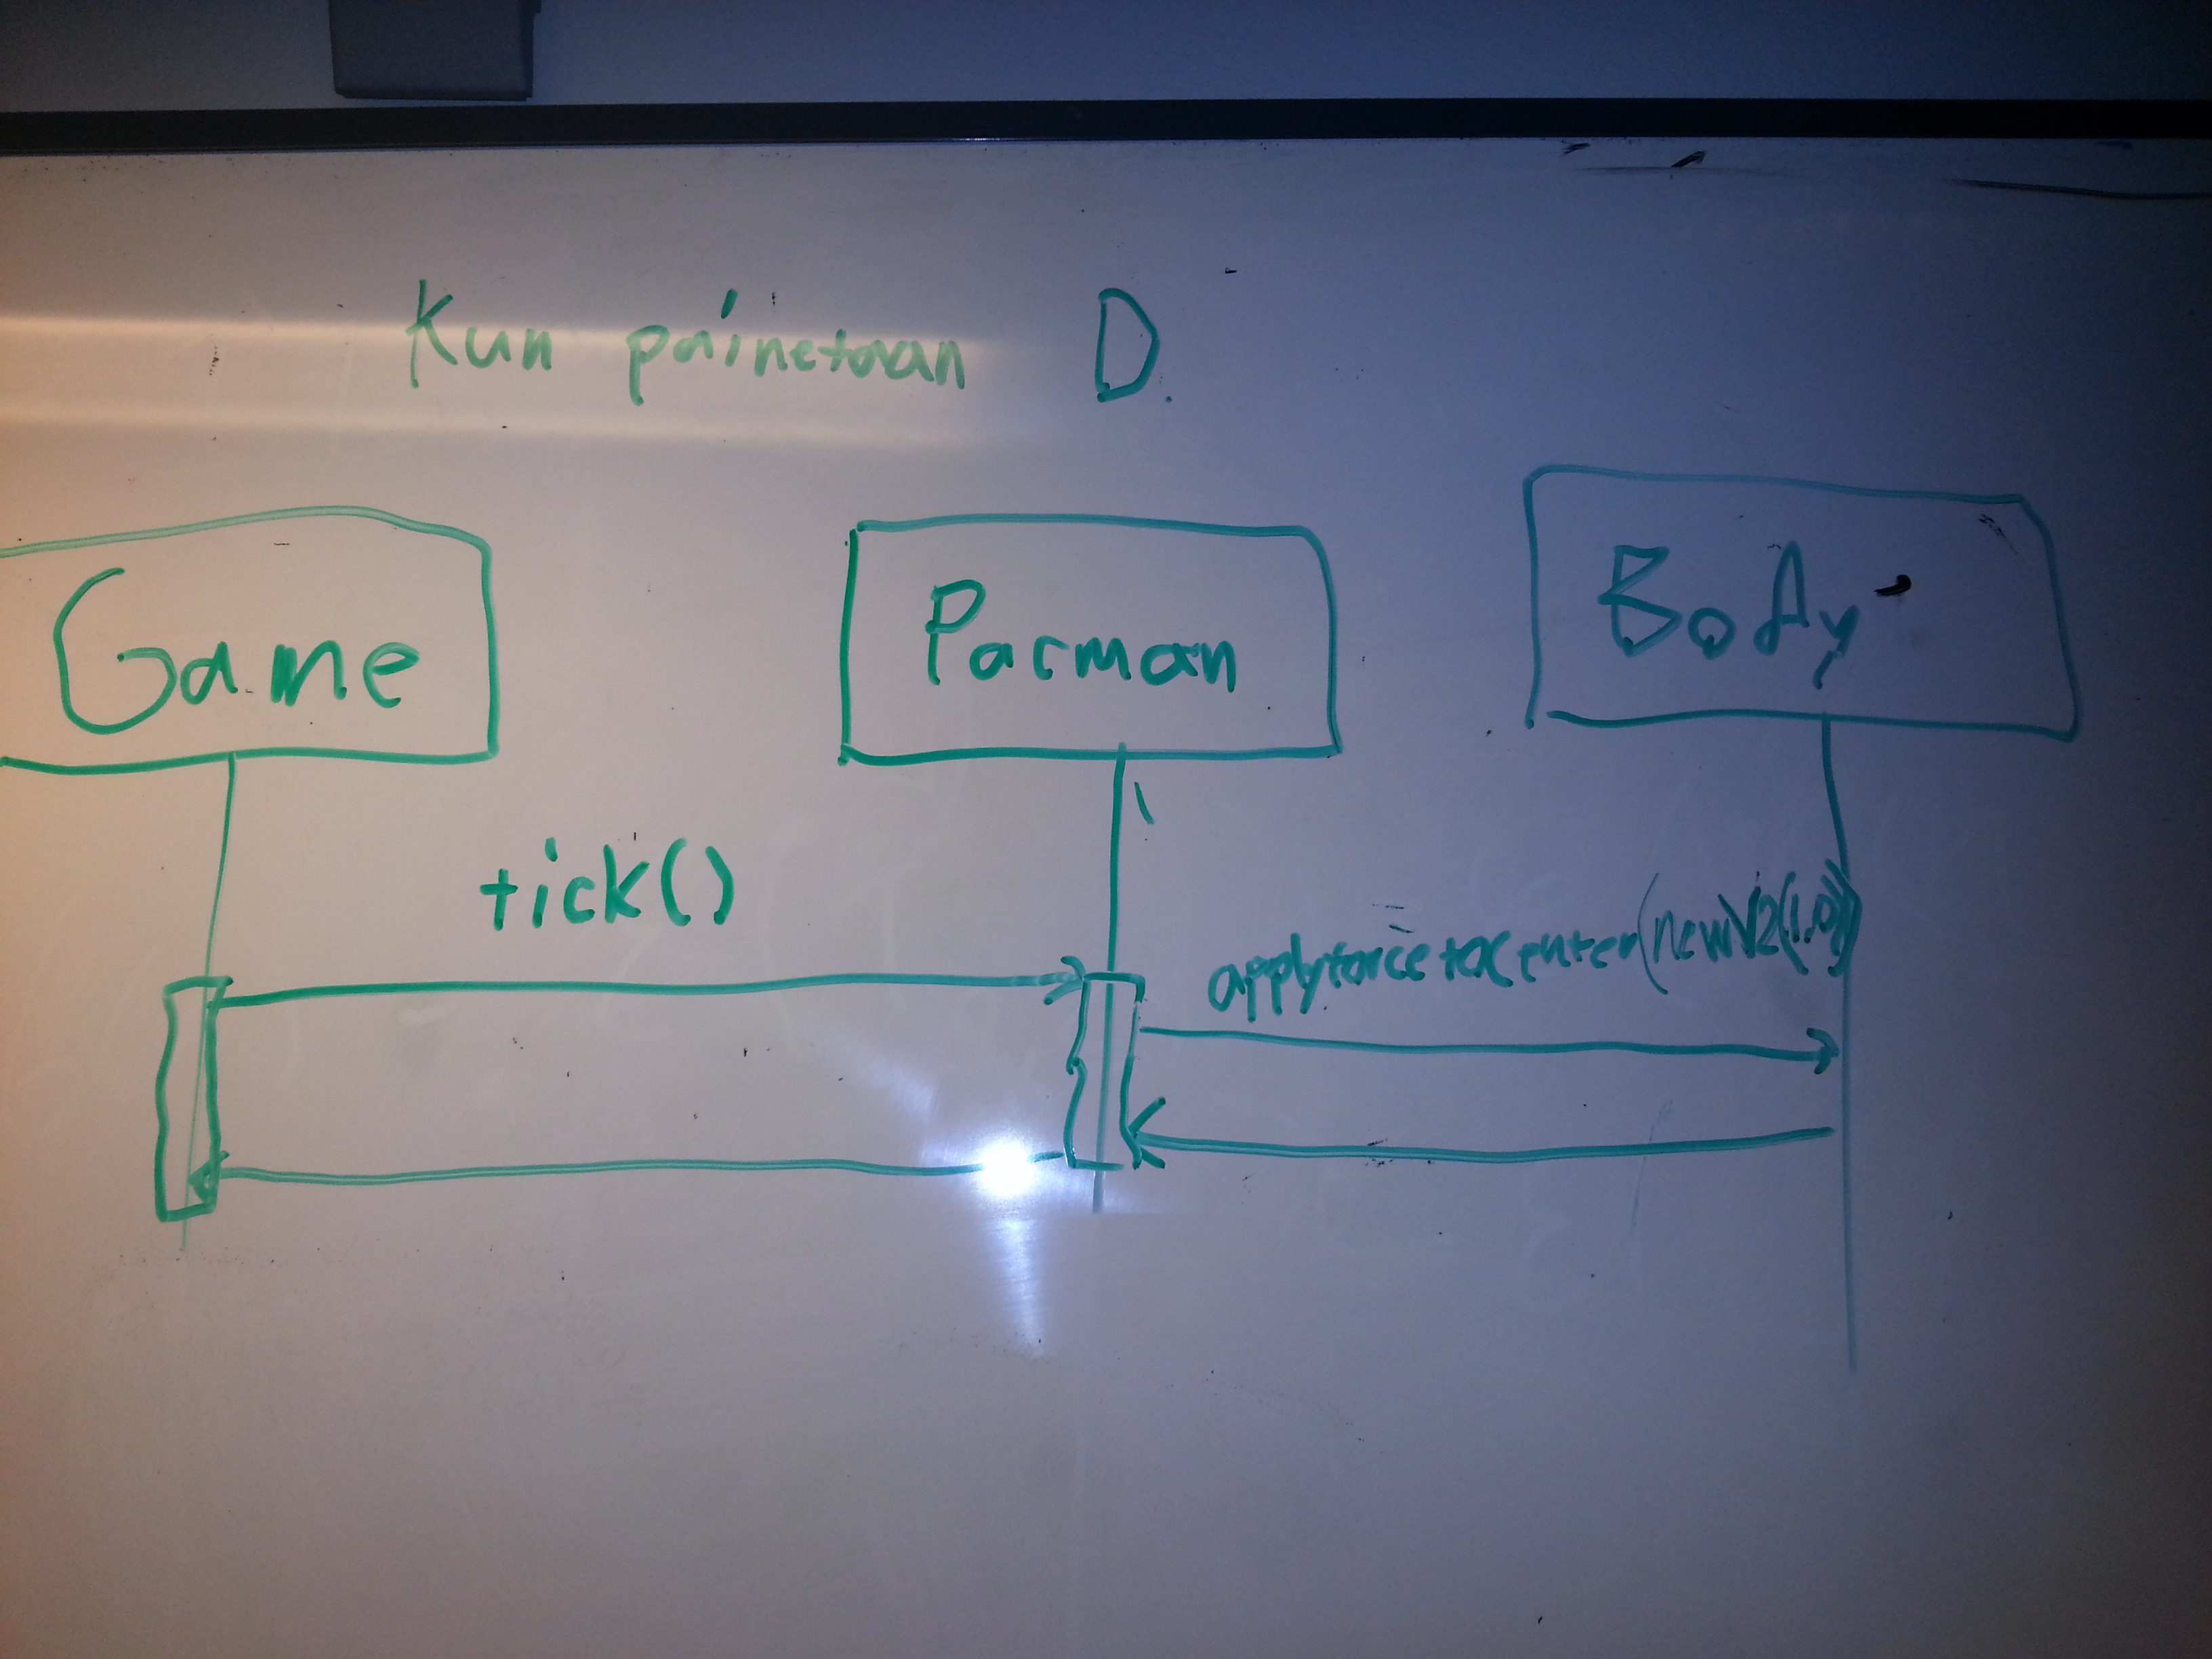 Kun painetaan D.
Game
Pacman
Body
tick()
applyforcetoCenter(newV2(1,0))